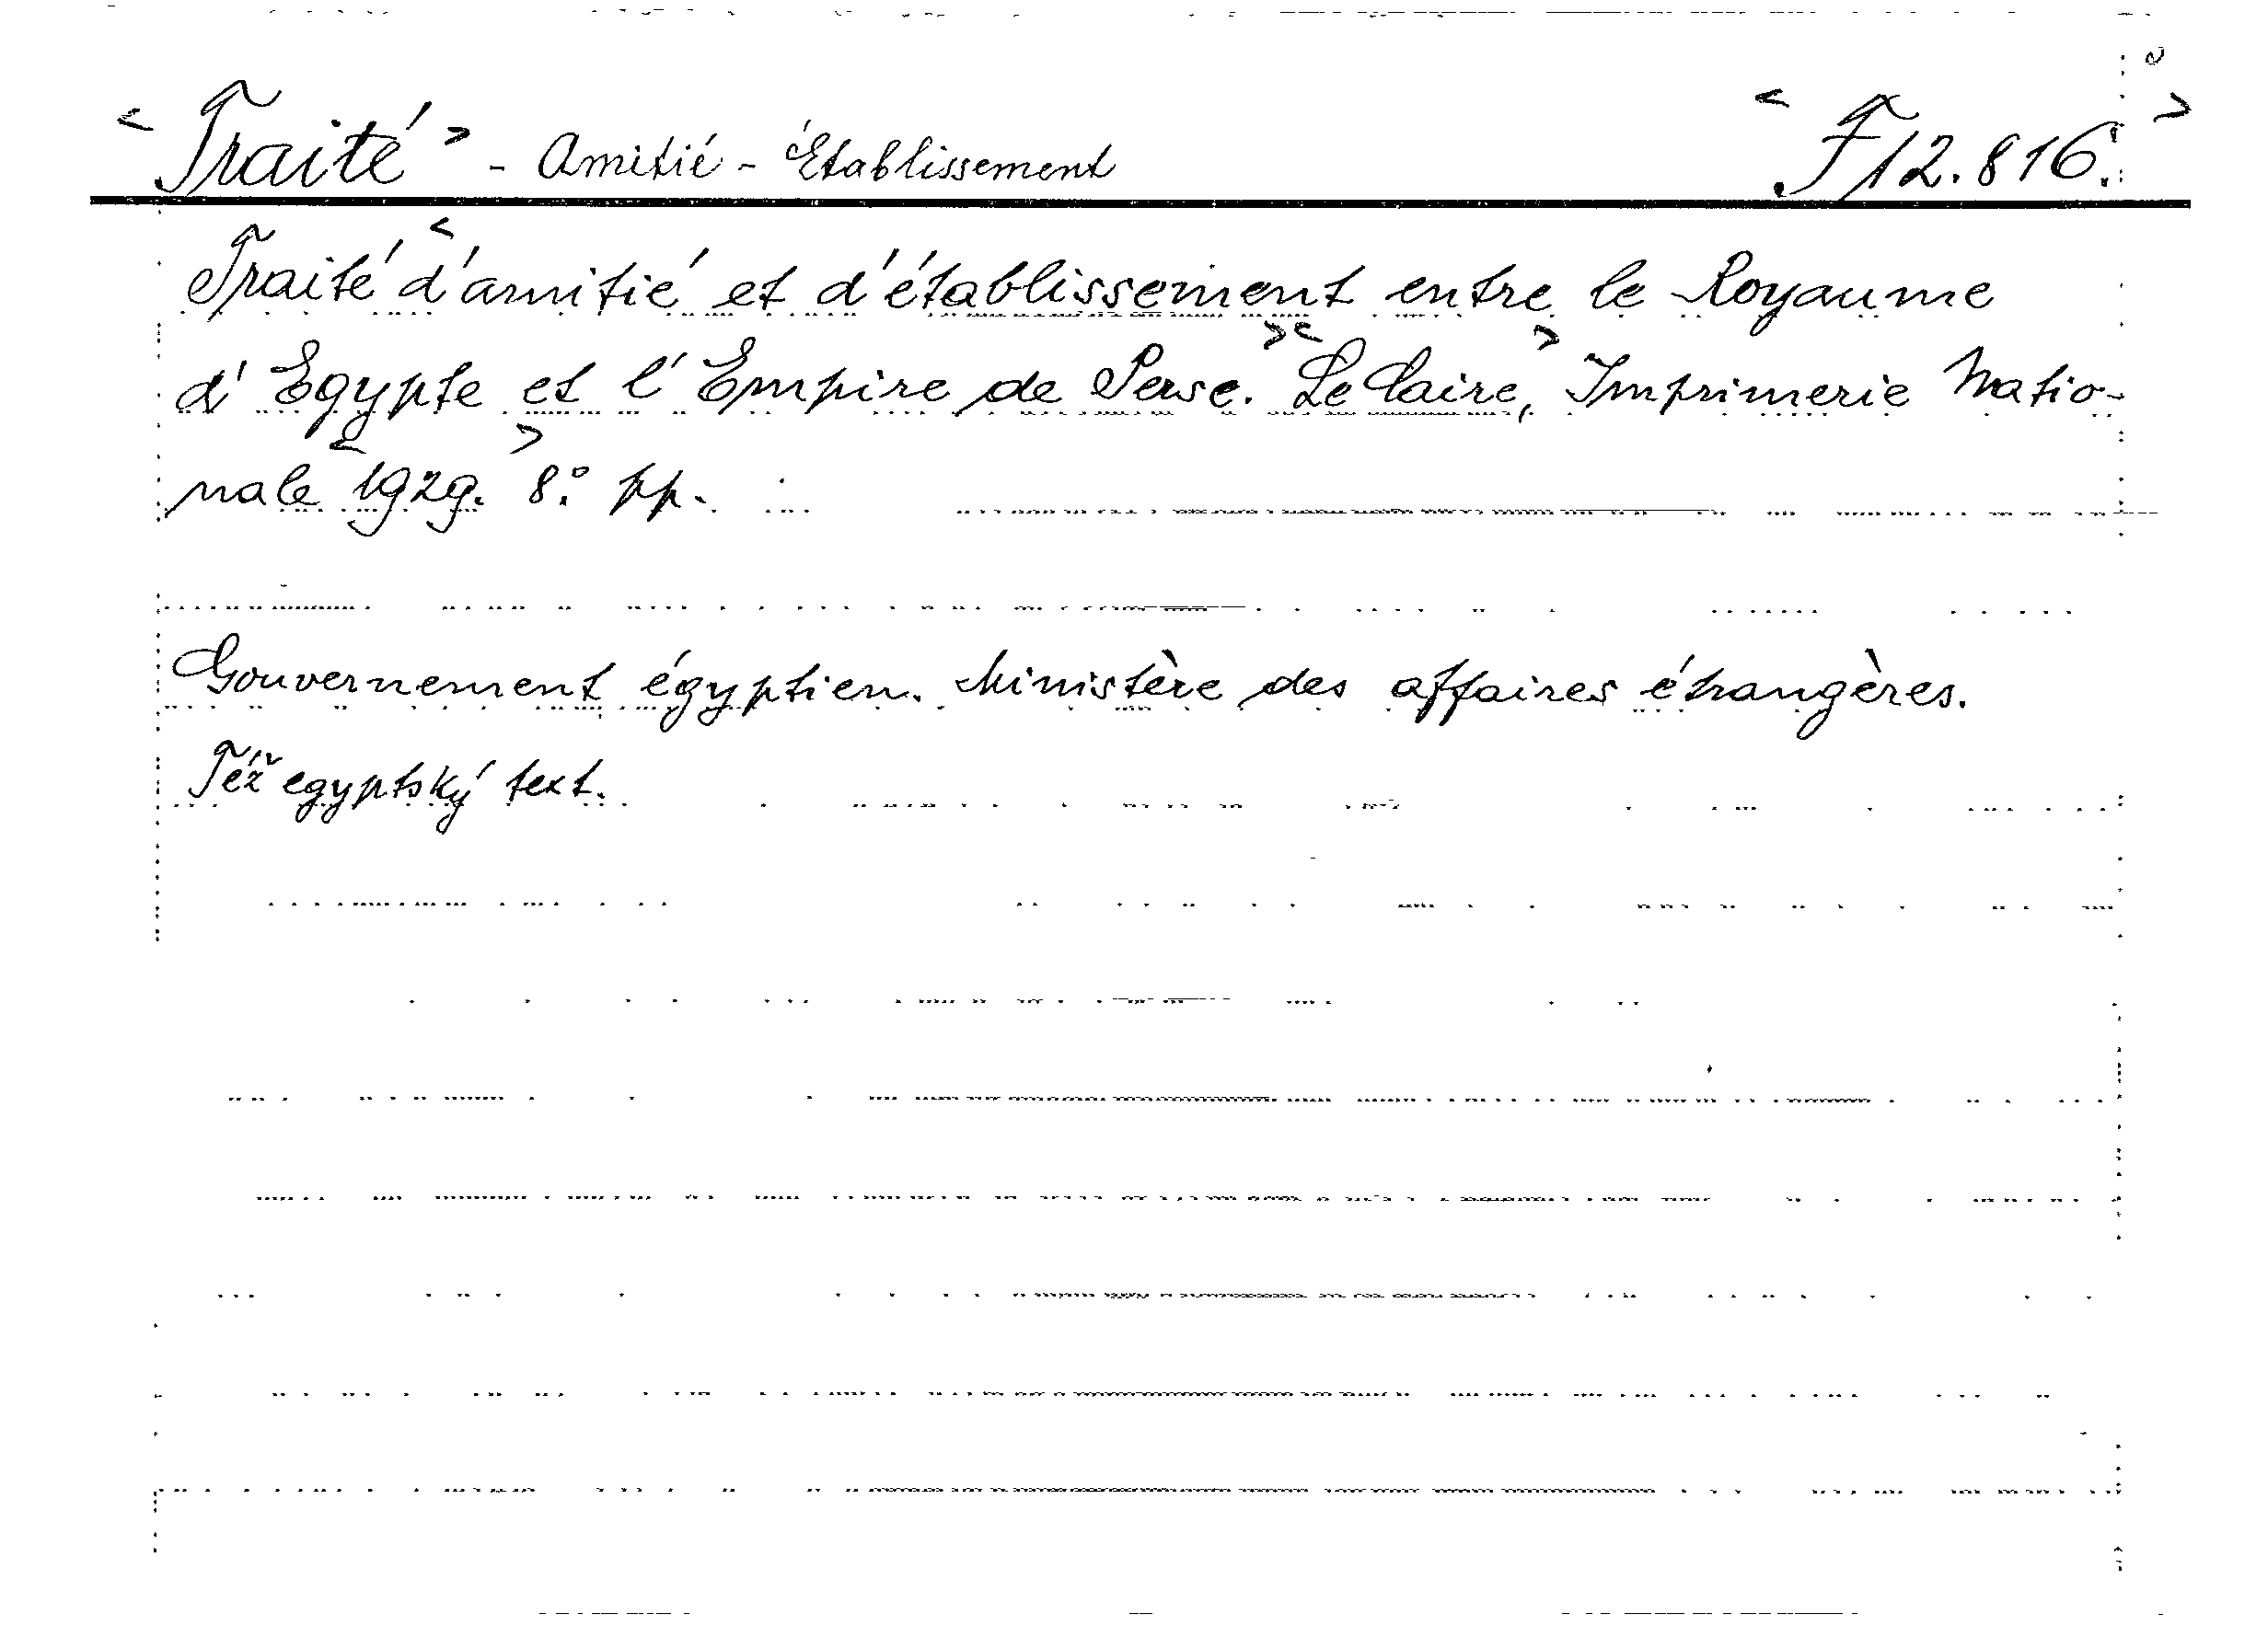 < Traité > - Amitié - Établissement < F 12.816. >
Traité < d'amitié et d'établissement entre le Royaume
d'Egypte et l'Empire de Perse. > < Le Caire, > Imprimerie Natio-
nale < 1929. > 8.° pp.
Gouvernement égyptien. Ministère des affaires étrangères.
Též egyptský text.